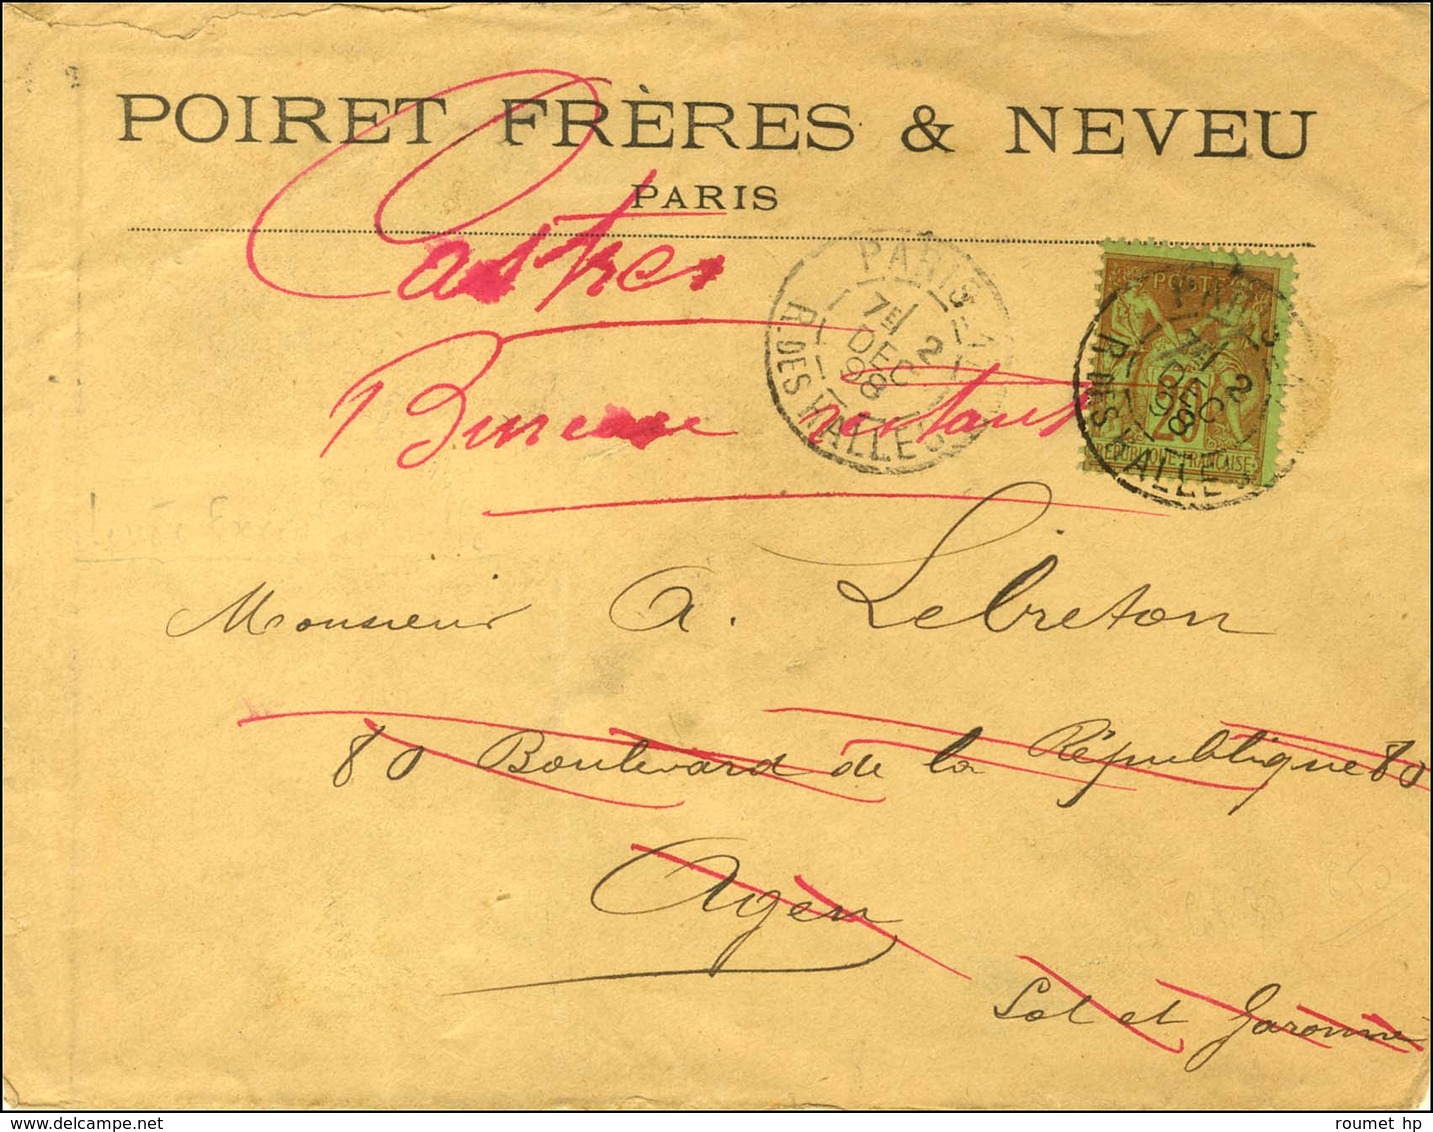 POIRET FRÈRES & NEVEU
PARIS
Castres
Bureau restant
PARIS-
7E/ 2
DEC
98
R. DES HALLES
POSTE
20
REPUBLIQUE FRANÇAISE
PARIS
7E/ 2
DEC
98
R. DES HALLES
Monsieur A. Lebreton
80 Boulevard de la République 80
Agen
Lot et Garonne
www.delcampe.net
roumet hp